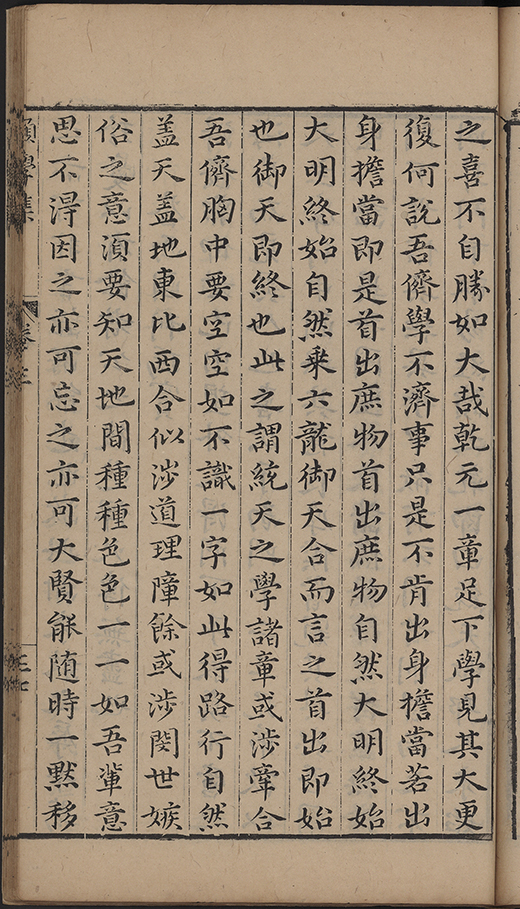 之喜不自勝如大哉乾元一章足下學見其大更
復何說吾儕學不濟事只是不肯出身擔當若出
身擔當即是首出庶物首出庶物自然大明終始
大明終始自然乗六龍御天合而言之首出即始
也御天即終也此之謂統天之學諸章或涉牽合
吾儕胸中要空空如不識一字如此得路行自然
盖天盖地東比西合似涉道理障餘或涉閔世嫉
俗之意湏要知天地間種種色色一一如吾輩意
思不淂因之亦可忘之亦可大賢能随時一默移
願學集
卷二